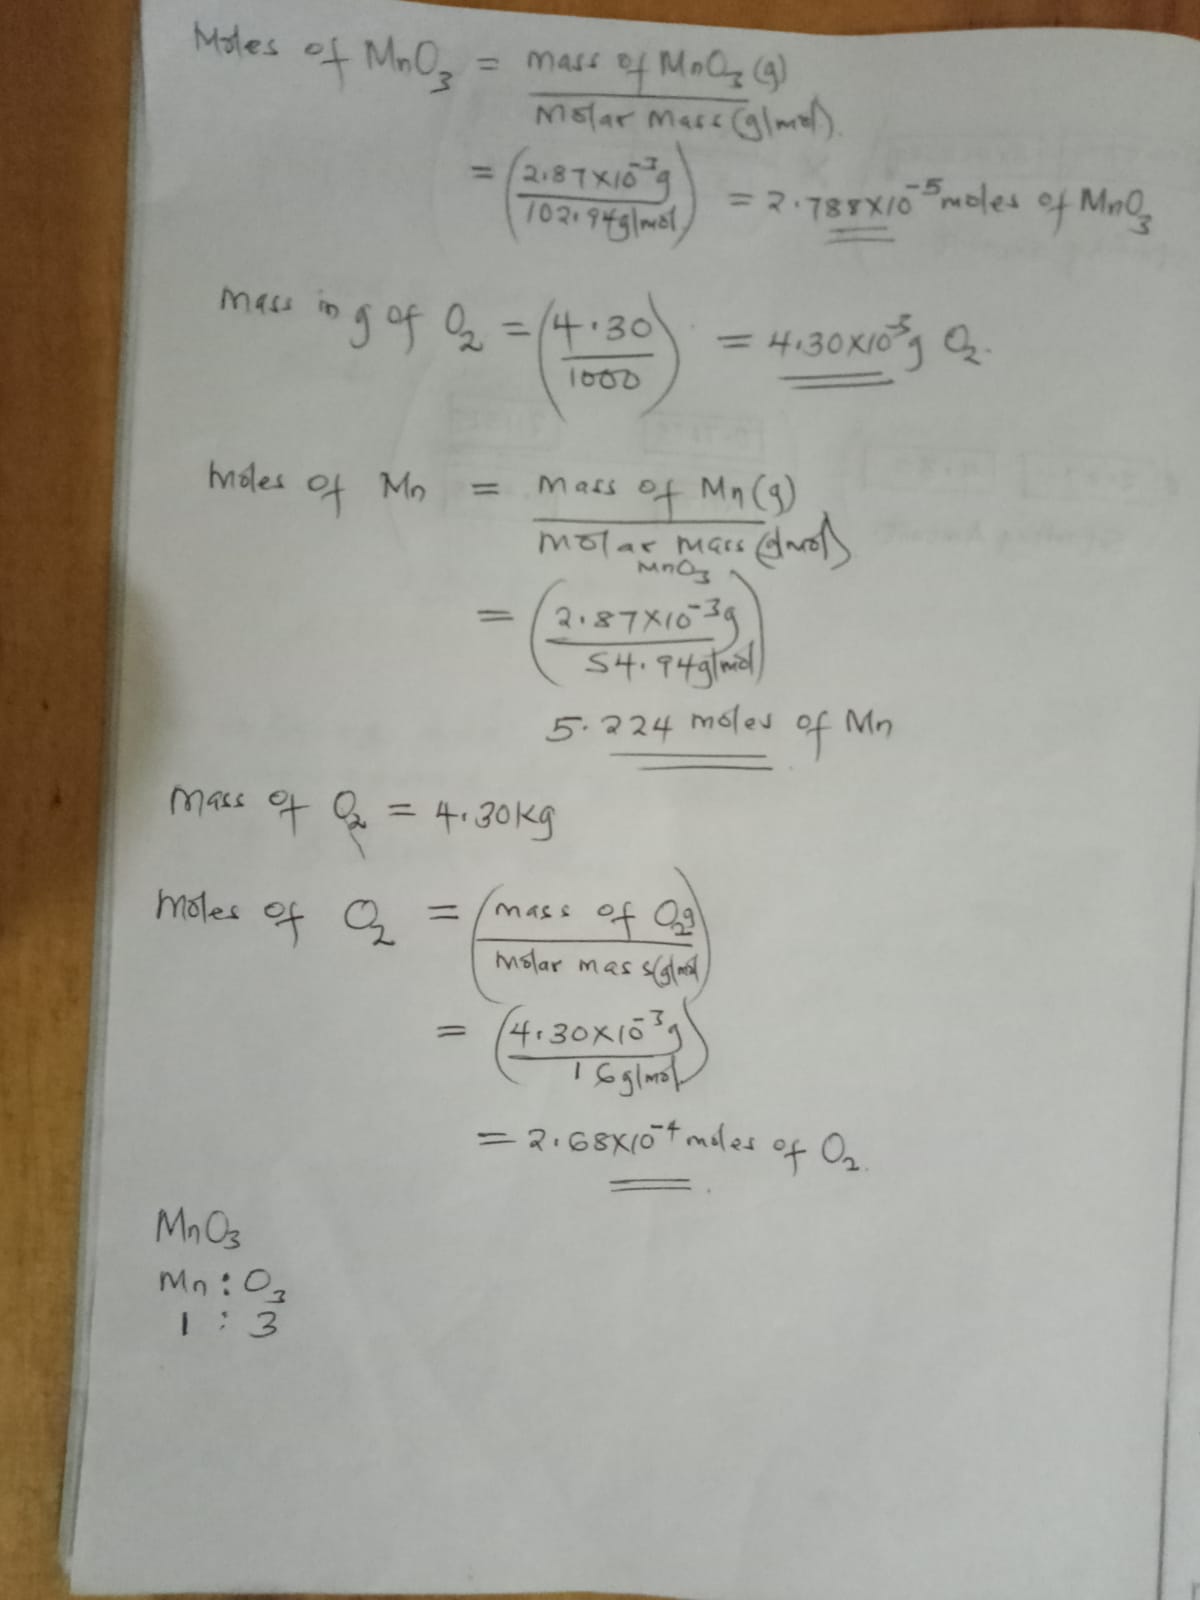 Moles of MnO₃ = mass of MnO₃ (g)
Molar Mass (g/mol).
= (2.87×10⁻³g
102.94g/mol) = 2.788×10⁻⁵ moles of MnO₃
Mass in g of O₂ = (4.30
1000) = 4.30×10⁻³g O₂.
Moles of Mn = Mass of Mn (g)
Molar mass (g/mol)
MnO₃
= (2.87×10⁻³g
54.94g/mol)
5.224 moles of Mn
Mass of O₂ = 4.30kg
Moles of O₂ = (mass of O₂g
molar mass(g/mol)
= (4.30×10⁻³g)
16g/mol
= 2.68×10⁻⁴ moles of O₂.
MnO₃
Mn : O₃
1 : 3